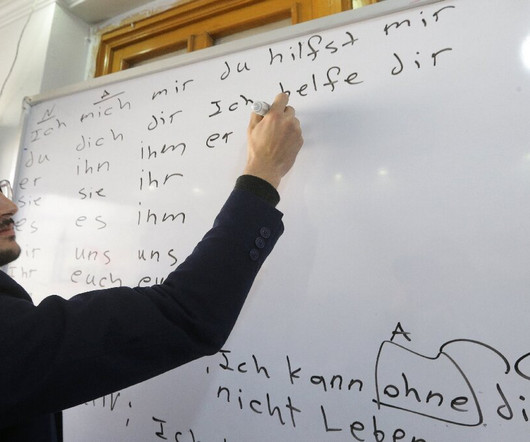 N A
Ich mich mir du hilfst mir
du dich dir Ich helfe dir
er ihn ihm er
sie sie ihr
es es ihm
uns uns
Ihr euch
A
Ich kann ohne
nicht Leben
Ich